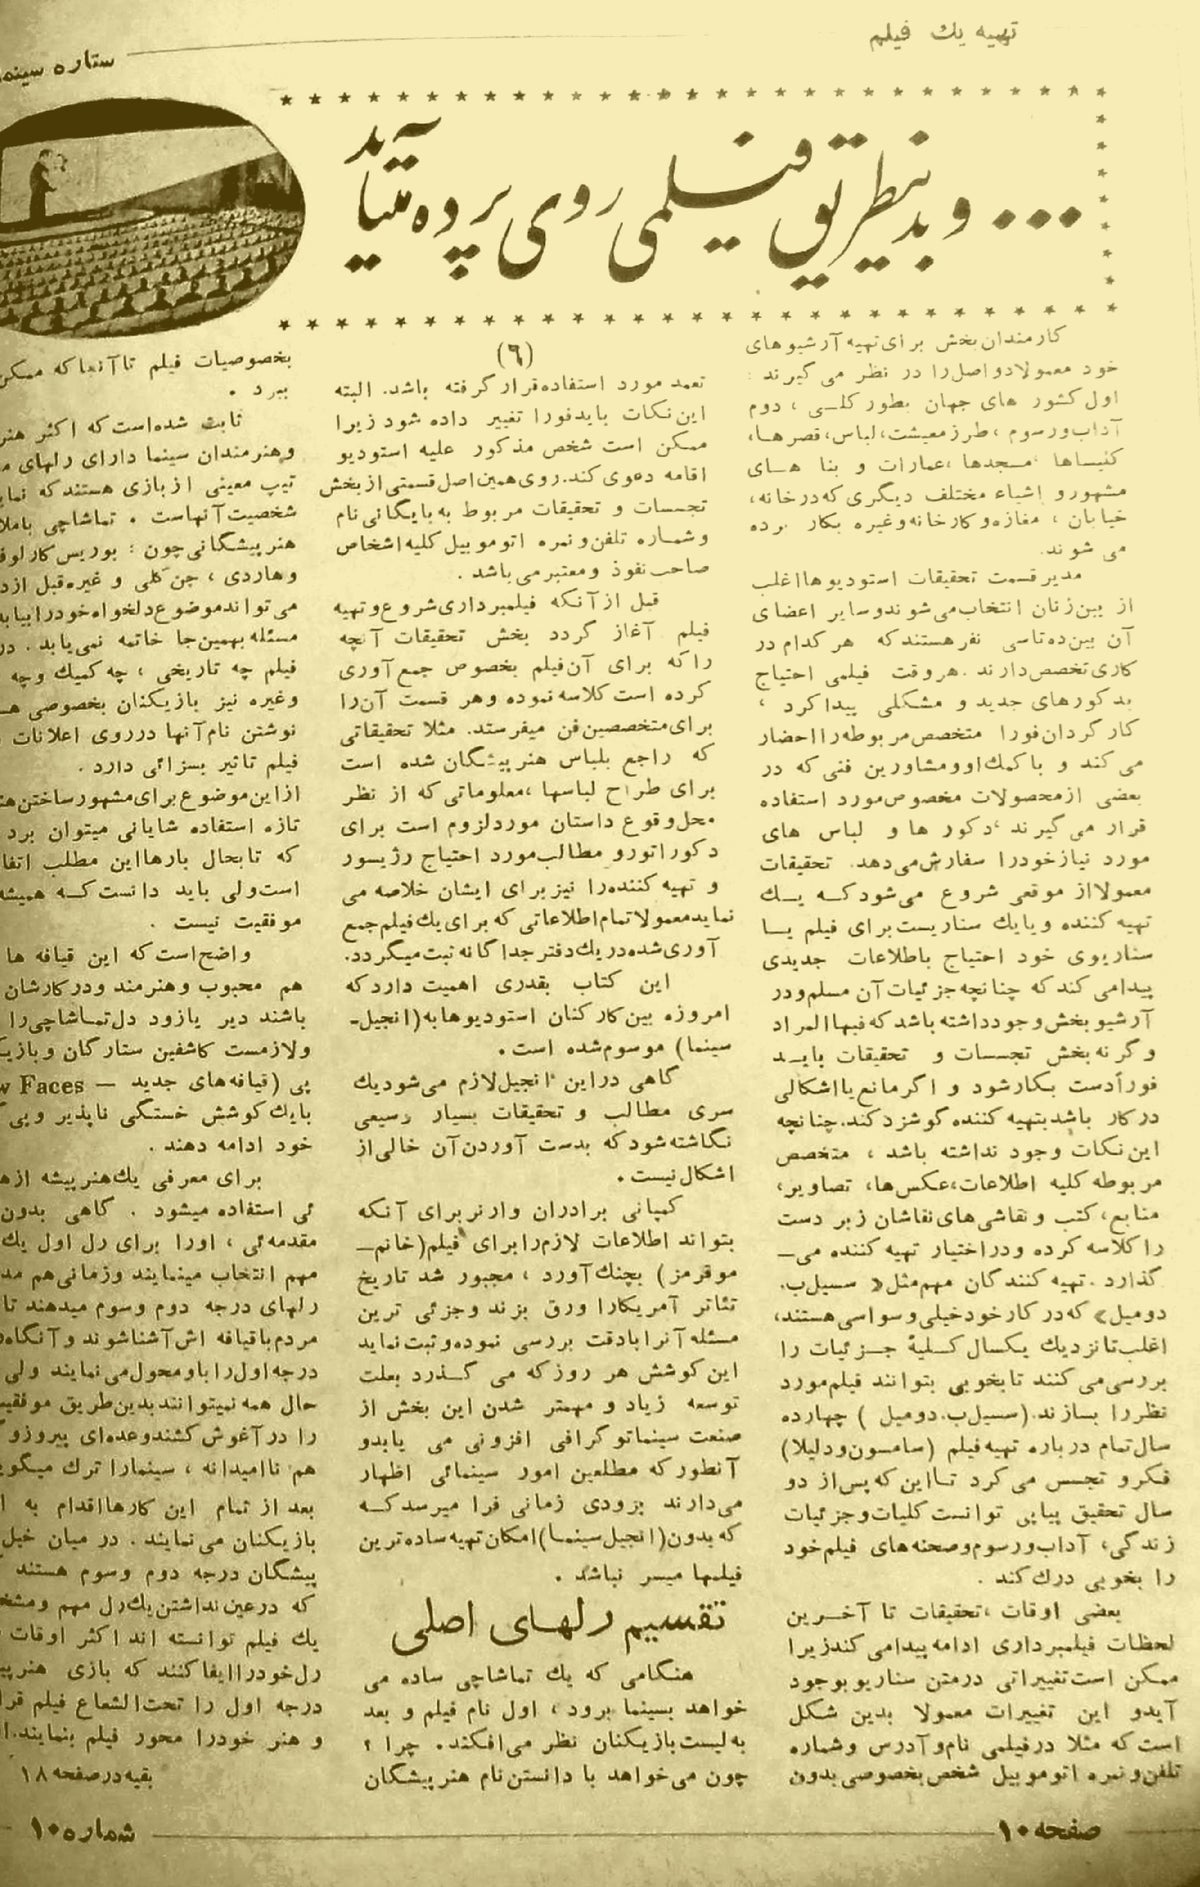 تهیه یك فیلم
ستاره سینما
... و بدینطریق فیلمی روی پرده میآید
کارمندان بخش برای تهیه آرشیوهای
خود معمولا دو اصل را در نظر می گیرند :
اول کشور های جهان بطور کلـی ، دوم
آداب و رسوم ، طرز معیشت، لباس، قصرها،
کنیساها ، مسجدها ، عمارات و بنا هـای
مشهور و اشیاء مختلف دیگری که در خانه،
خیابان ، مغازه و کارخانه و غیره بکار برده
می شوند.
مدیر قسمت تحقیقات استودیوها اغلب
از بین زنان انتخاب می شوند و سایر اعضای
آن بین ده تا سی نفر هستند که هر کدام در
کاری تخصص دارند . هر وقت فیلمی احتیاج
بدکورهای جدید و مشکلی پیدا کرد ،
کارگردان فورا متخصص مربوطه را احضار
می کند و با کمك او و مشاورین فنی که در
بعضی از محصولات مخصوص مورد استفاده
قرار می گیرند ، دکور ها و لباس های
مورد نیاز خود را سفارش می دهد. تحقیقات
معمولا از موقعی شروع می شود کـه یـك
تهیه کننده و یا یك سناریست برای فیلم یـا
سناریوی خود احتیاج باطلاعات جدیدی
پیدا می کند که چنانچه جزئیات آن مسلم و در
آرشیو بخش وجود داشته باشد که فبها المراد
و گر نه بخش تجسسات و تحقیقات بایـد
فوراً دست بکار شود و اگر مانع یا اشکالی
در کار باشد بتهیه کننده گوشزد کند. چنانچه
این نکات وجود نداشته باشد ، متخصص
مربوطه کلیه اطلاعات، عکس ها، تصاویر،
منابع، کتب و نقاشی های نقاشان زبر دست
را کلاسه کرده و در اختیار تهیه کننده میـ
گذارد . تهیه کنندگان مهم مثل « سیسیل ب.
دومیل » که در کار خود خیلی وسواسی هستند،
اغلب تا نزدیك یکسال کـلیهٔ جـزئیات را
بررسی می کنند تا بخوبی بتوانند فیلم مورد
نظر را بسازند. (سیسیل ب. دومیل ) چهارده
سال تمام درباره تهیه فیلم (سامسون و دلیلا)
فکر و تجسس می کرد تـا این که پس از دو
سال تحقیق پیاپی توانست کلیات و جزئیات
زندگی، آداب و رسوم و صحنه های فیلم خود
را بخوبی درك کند .
بعضی اوقات ، تحقیقات تا آخـرین
لحظات فیلمبرداری ادامه پیدا می کند زیرا
ممکن است تغییراتی در متن سناریو بوجود
آید و این تغییرات معمولا بدین شکل
است که مثلا در فیلمی نام و آدرس و شماره
تلفن و نمره اتوموبیل شخص بخصوصی بدون
(٦)
تعمد مورد استفاده قرار گرفته باشد. البته
این نکات باید فورا تغییر داده شود زیرا
ممکن است شخص مذکور علیه استودیو
اقامه دعوی کند. روی همین اصل قسمتی از بخش
تجسسات و تحقیقات مربوط به بایگانی نام
و شماره تلفن و نمره اتوموبیل کلیه اشخاص
صاحب نفوذ و معتبر می باشد .
قبل از آنکه فیلمبرداری شروع و تهیه
فیلم آغاز گردد بخش تحقیقات آنچه
را که برای آن فیلم بخصوص جمع آوری
کرده است کلاسه نموده و هر قسمت آن را
برای متخصصین فن میفرستد. مثلا تحقیقاتی
که راجع بلباس هنرپیشگان شده است
برای طراح لباسها ، معلوماتی که از نظر
محل وقوع داستان مورد لزوم است برای
دکوراتور و مطالب مورد احتیاج رژیسور
و تهیه کننده را نیز برای ایشان خلاصه می
نماید معمولا تمام اطلاعاتی که برای یك فیلم جمع
آوری شده در یك دفتر جداگانه ثبت میگردد.
این کتاب بقدری اهمیت دارد که
امروزه بین کارکنان استودیوها به (انجیلـ
سینما) موسوم شده است .
گاهی در این انجیل لازم می شود یك
سری مطالب و تحقیقات بسیار وسیعی
نگاشته شود که بدست آوردن آن خالی از
اشکال نیست .
کمپانی برادران وارنر برای آنکه
بتواند اطلاعات لازم را برای فیلم (خانمـ
موقرمز ) بچنك آورد ، مجبور شد تاریخ
تئاتر آمریکا را ورق بزند و جزئی ترین
مسئله آنرا با دقت بررسی نموده و ثبت نماید
این کوشش هر روز که می گـذرد بعلت
توسعه زیاد و مهمتر شدن این بخش از
صنعت سینماتوگرافی افزونی می یابد و
آنطور که مطلعین امور سینمائی اظهار
می دارند بزودی زمانی فرا میرسد کـه
که بدون (انجیل سینما) امکان تهیه ساده ترین
فیلمها میسر نباشد .
تقسیم رلهای اصلی
هنگامی که یك تماشاچی ساده می
خواهد بسینما برود ، اول نام فیلم و بعد
به لیست بازیکنان نظر می افکند . چرا ؟
چون می خواهد با دانستن نام هنرپیشگان
بخصوصیات فیلم تا آنجا که ممکن
ببرد .
ثابت شده است که اکثر هنر
و هنرمندان سینما دارای رلهای
تیپ معینی از بازی هستند که
شخصیت آنهاست . تماشاچی
هنرپیشگانی چون : بوریس کارلوف
و هاردی ، جن کلی و غیره قبل از
می تواند موضوع دلخواه خود را بیابد
مسئله بهمین جا خاتمه نمی یابد . در
فیلم چه تاریخی ، چه کمیك و چه
و غیره نیز بازیکنان بخصوصی
نوشتن نام آنها در روی اعلانات
فیلم تاثیر بسزائی دارد .
از این موضوع برای مشهور ساختن
تازه استفاده شایانی میتوان برد
که تا بحال بارها این مطلب
است ولی باید دانست کـه همیشه
موفقیت نیست .
واضح است که این قیافه ها
هم محبوب و هنرمند و در کارشان
باشند دیر یا زود دل تماشاچی را
و لازمست کاشفین ستارگان و
پی (قیافه های جدید — Faces
با یك کوشش خستگی ناپذیر و پی
خود ادامه دهند .
برای معرفی یك هنرپیشه از
ئی استفاده میشود . گاهی بدون
مقدمه ئی ، او را برای رل اول یك
مهم انتخاب مینمایند و زمانی هم
رلهای درجه دوم و سوم میدهند تا
مردم با قیافه اش آشنا شوند و آنگاه
درجه اول را باو محول می نمایند ولی
حال همه نمیتوانند بدین طریق
را در آغوش کشند و عده ای پیروز و
هم ناامیدانه ، سینما را ترك
بعد از تمام این کارها اقدام به
بازیکنان می نمایند . در میان
پیشگان درجه دوم و سوم هستند
که در عین نداشتن یك رل مهم و
یك فیلم توانسته اند اکثر اوقات
رل خود را ایفا کنند که بازی
درجه اول را تحت الشعاع فیلم
و هنر خود را محور فیلم بنمایند.
بقیه در صفحه ۱۸
صفحه ۱۰
شماره ۱۰